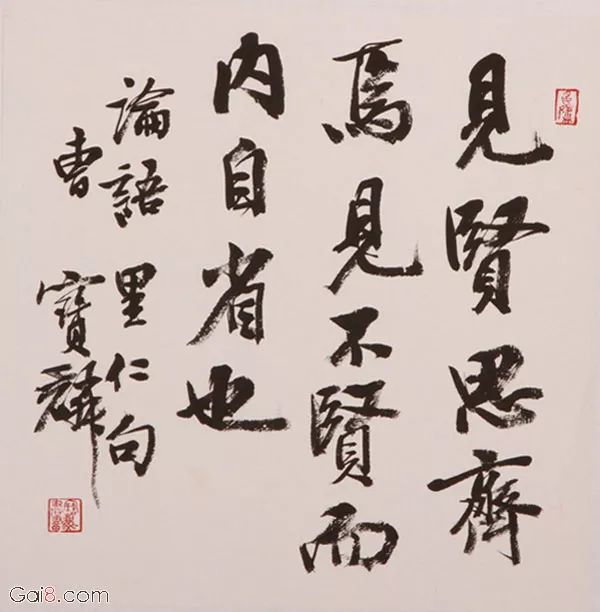 見賢思齊
焉見不賢而
內自省也
論語里仁句
曹寶麟
Gai8.com